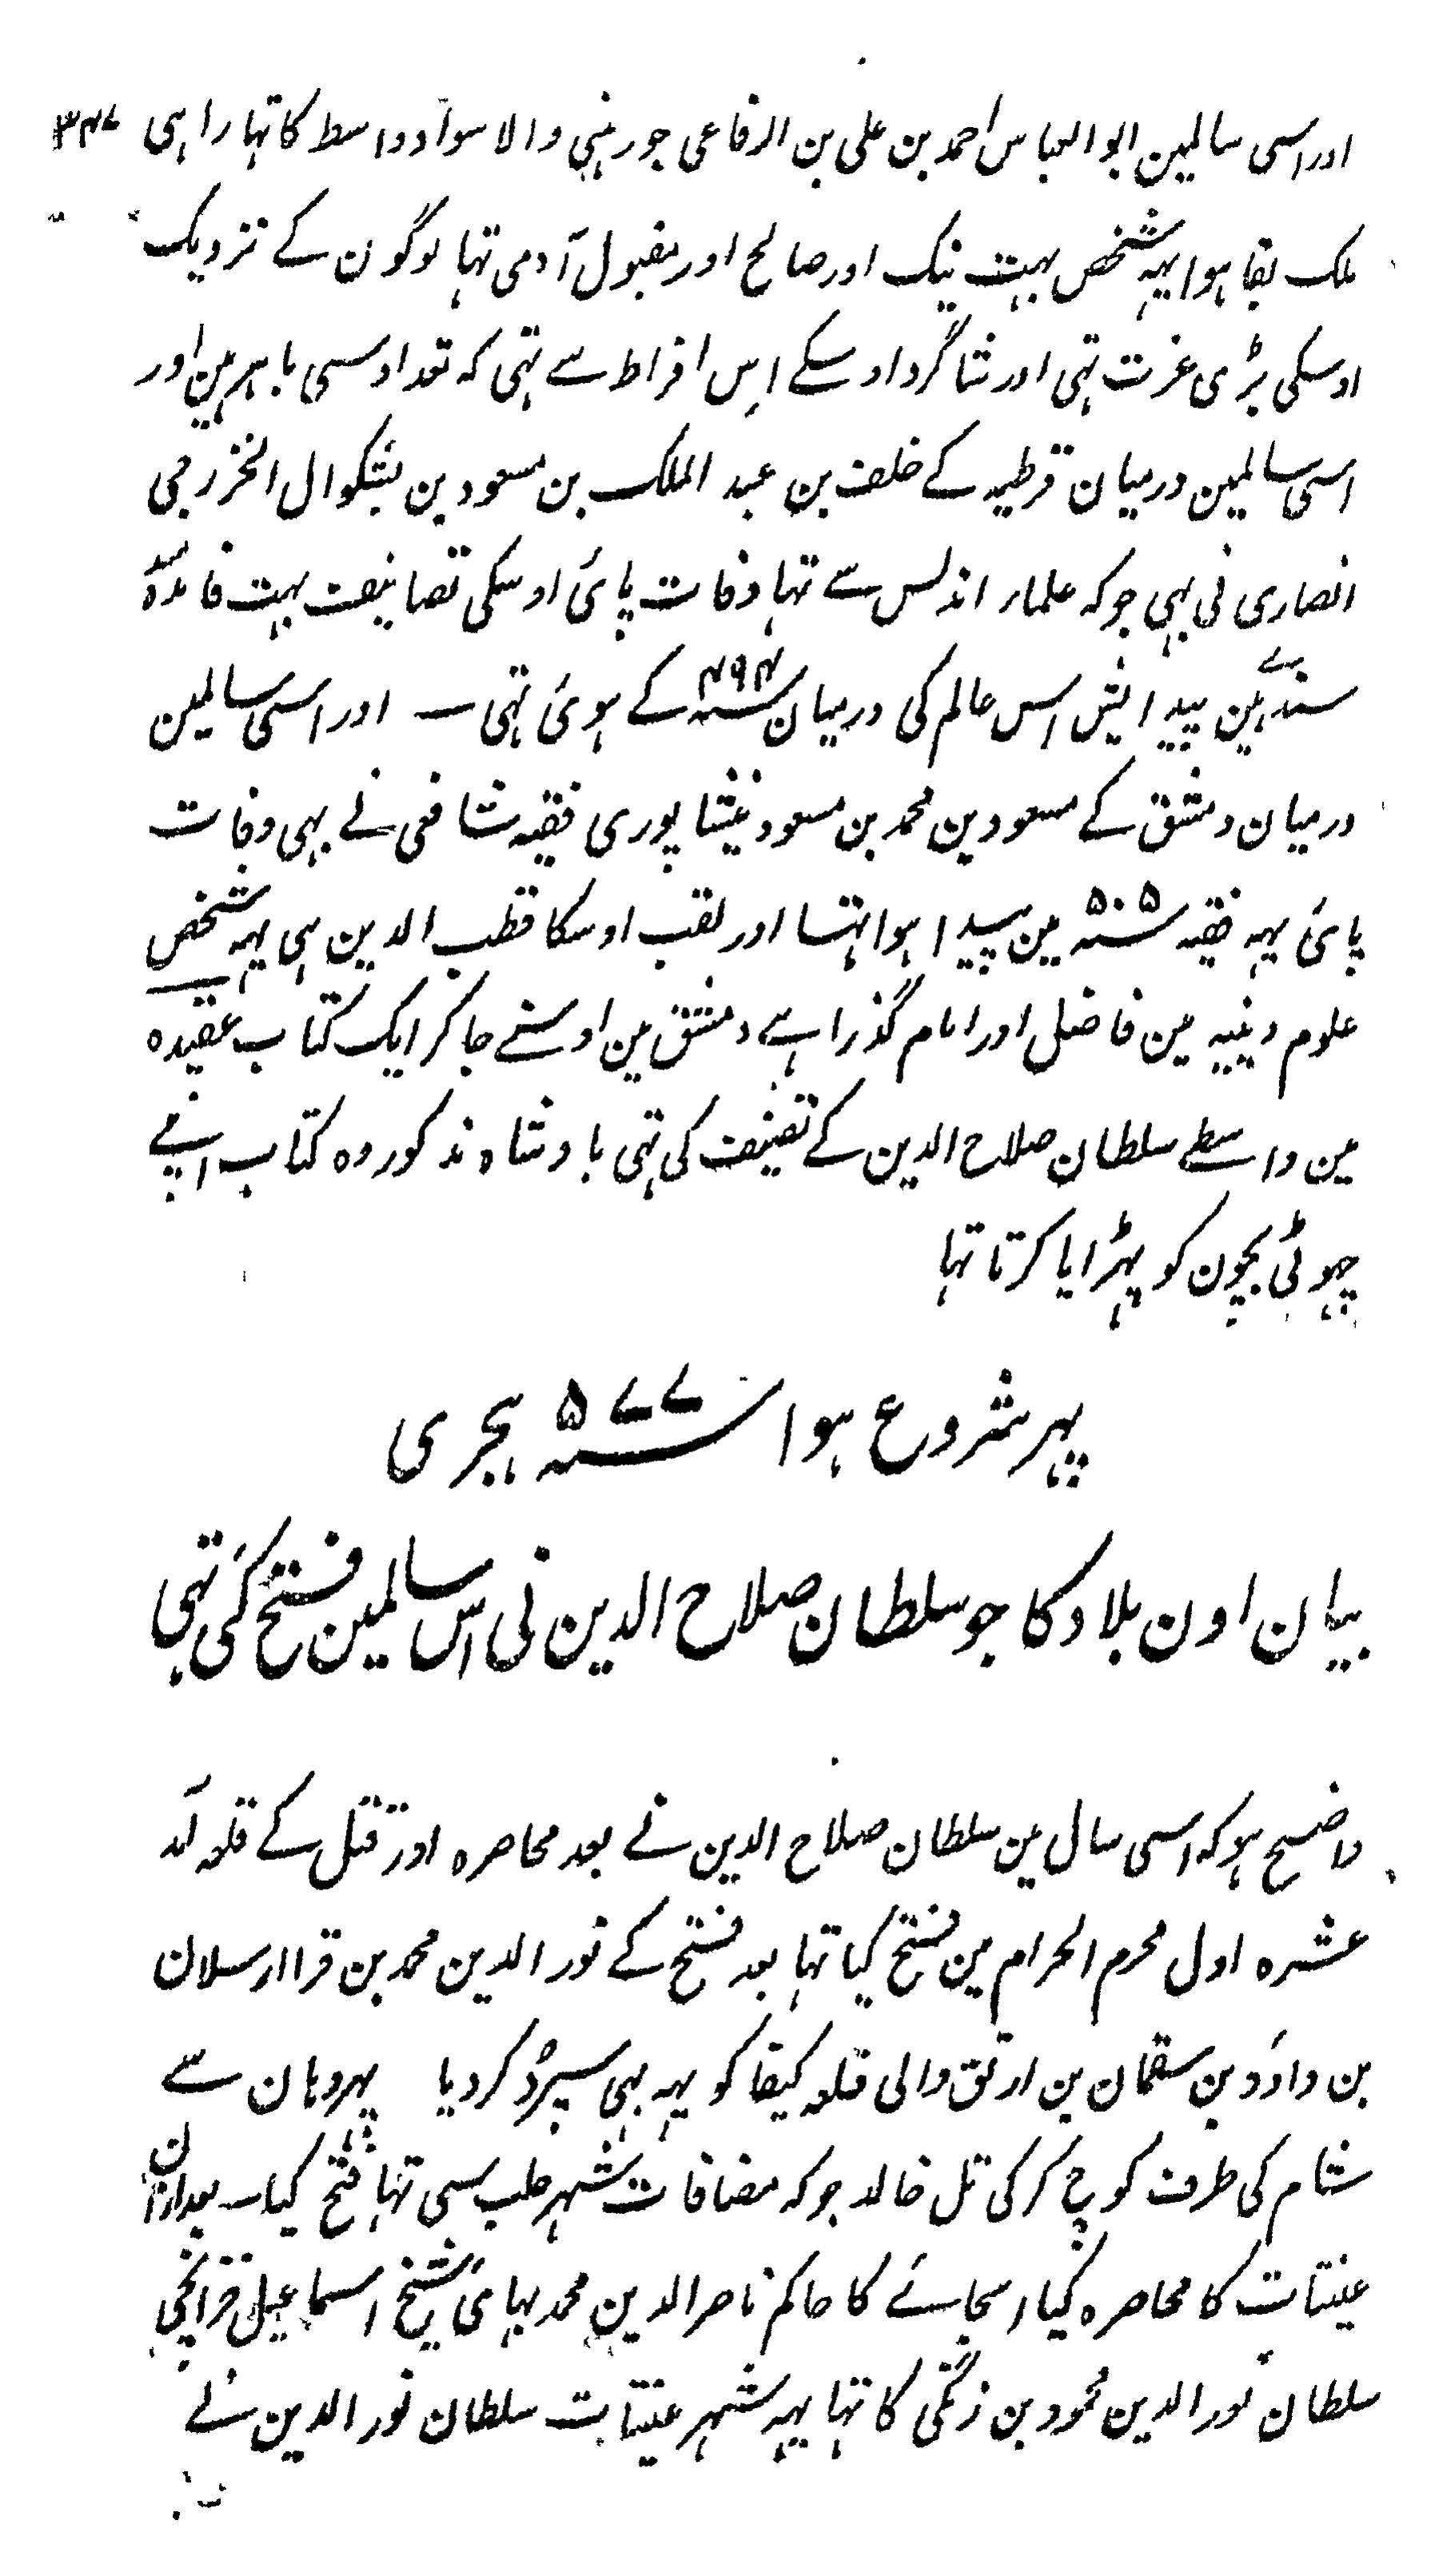 اور اسی سالمین ابو العباس احمد بن علی بن الرفاعی جو رہنی والا سوادو واسط کا تہا راہی ۳۴۷
ملک بقا ہوا یہہ شخص بہت نیک اور صالح اور مقبول آدمی تہا لوگون کے نزدیک
اوسکی بڑی عزت تہی اور شاگرد اوسکے اِس افراط سے تہی کہ تعداد سی باہر ہین اور
اسی سالمین درمیان قرطبہ کے خلف بن عبد الملک بن مسعود بن بشکوال الخزرجی
انصاری نی بہی جو کہ علماء اندلس سے تہا وفات پائی اوسکی تصانیف بہت فائدہ
مند ہین پیدایش اس عالم کی درمیان ۴۹۴سنہ کے ہوئی تہی ۔ اور اسی سالمین
درمیان دمشق کے مسعود بن محمد بن مسعود نیشاپوری فقیہ شافعی نے بہی وفات
پائی یہہ فقیہ ۵۰۵سنہ مین پیدا ہوا تہا اور لقب اوسکا قطب الدین ہی یہہ شخص
علوم دینیہ مین فاضل اور امام گذرا ہے دمشق مین اوسنے جا کر ایک کتاب عقیدہ
مین واسطے سلطان صلاح الدین کے تصنیف کی تہی بادشاہ مذکور وہ کتاب اپنے
چہوٹی بچون کو پہڑایا کرتا تہا
پہر شروع ہوا ۵۷۷سنہ ہجری
بیان اون بلاد کا جو سلطان صلاح الدین نی اس سالمین فتح کئی تہی
واضح ہو کہ اسی سال مین سلطان صلاح الدین نے بعد محاصرہ اور قتل کے قلعہ آمد
عشرہ اول محرم الحرام مین فتح کیا تہا بعد فتح کے نور الدین محمد بن قرا ارسلان
بن داؤد بن سقمان بن ارتق والی قلعہ کیفا کو یہہ بہی سپرد کر دیا پہر وہان سے
شام کی طرف کوچ کر کی تل خالد جو کہ مضافات شہر حلب سی تہا فتح کیا ۔ بعد ازان
عینتاب کا محاصرہ کیا اسجائے کا حاکم ناصر الدین محمد بہائی شیخ اسماعیل خزانچی
سلطان نور الدین محمود بن زنگی کا تہا یہہ شہر عینتاب سلطان نور الدین نے